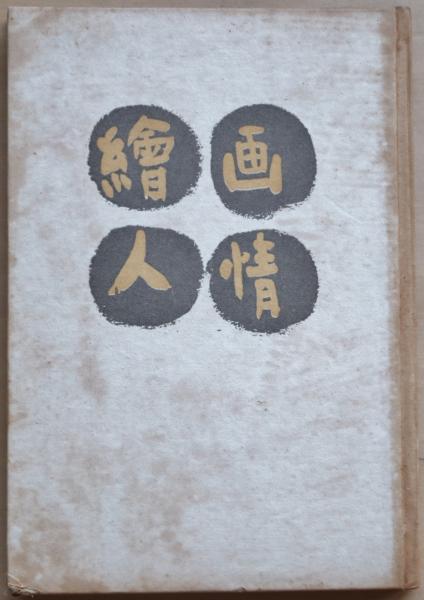 繪画
人情